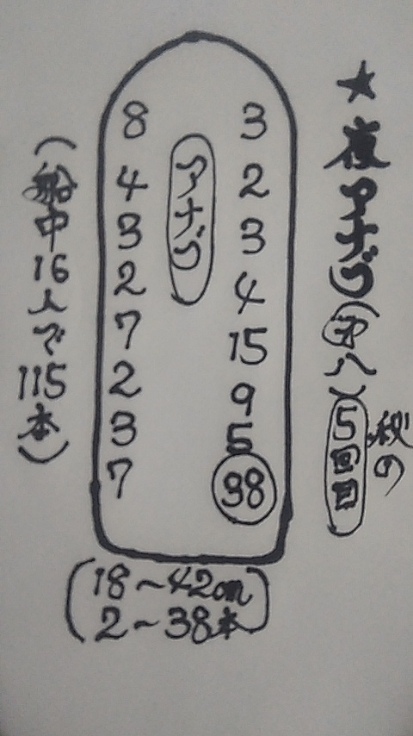 ★夜アナゴ
秋の
5回目
アナゴ
8 3
4 2
3 3
2 4
7 15
2 9
3 5
7 38
(船中16人で115本)
(18～42cm
2～38本)